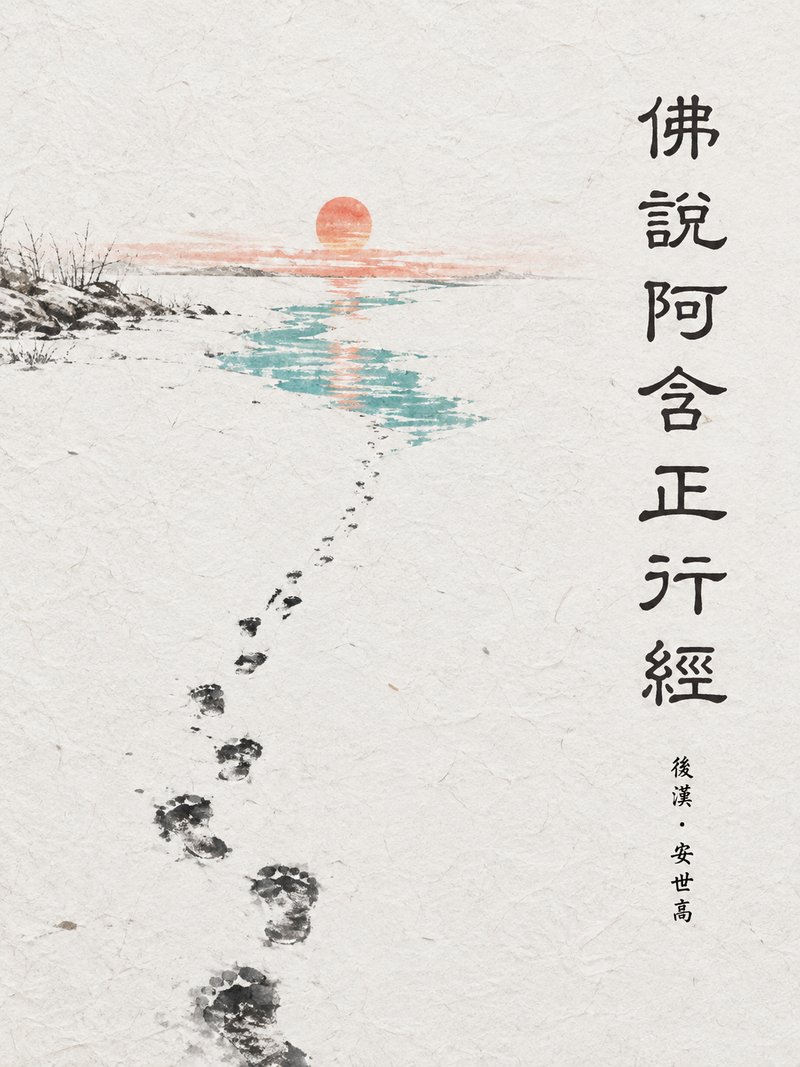 佛說阿含正行經
後漢·安世高